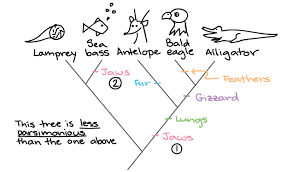 Lamprey
Sea bass
Antelope
Bald eagle
Alligator
Jaws
②
Fur
Feathers
Gizzard
Lungs
Jaws
①
This tree is less
parsimonious
than the one above